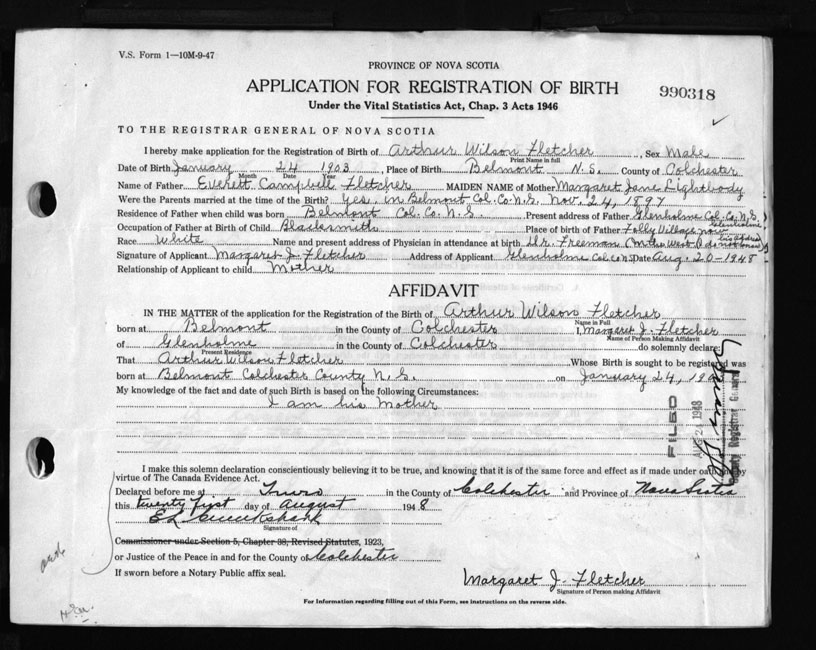 V.S. Form 1—10M-9-47
PROVINCE OF NOVA SCOTIA
APPLICATION FOR REGISTRATION OF BIRTH
990318
Under the Vital Statistics Act, Chap. 3 Acts 1946
TO THE REGISTRAR GENERAL OF NOVA SCOTIA
I hereby make application for the Registration of Birth of Arthur Wilson Fletcher, Sex Male
Print Name in full
Date of Birth January 24 1903, Place of Birth Belmont N.S. County of Colchester
Month Date Year
Name of Father Everett Campbell Fletcher MAIDEN NAME of Mother Margaret Jane Lightbody
Were the Parents married at the time of the Birth? Yes, in Belmont Col. Co. N.S. Nov. 24, 1897
Residence of Father when child was born Belmont Col. Co. N.S. Present address of Father Glenholme Col. Co. N.S.
Occupation of Father at Birth of Child Blacksmith Place of birth of Father Folly Village now Glenholme
Race White Name and present address of Physician in attendance at birth Dr. Freeman
Signature of Applicant Margaret J. Fletcher Address of Applicant Glenholme Col. Co. N.S. Date Aug. 20-1948
Relationship of Applicant to child Mother
AFFIDAVIT
IN THE MATTER of the application for the Registration of the Birth of Arthur Wilson Fletcher
Name in Full
born at Belmont in the County of Colchester I, Margaret J. Fletcher
Name of Person Making Affidavit
of Glenholme in the County of Colchester do solemnly declare:
Present Residence
That Arthur Wilson Fletcher Whose Birth is sought to be registered was
born at Belmont Colchester County N.S. on January 24, 190
My knowledge of the fact and date of such Birth is based on the following Circumstances:
I am his Mother
FILED
1948
Registrar General
I make this solemn declaration conscientiously believing it to be true, and knowing that it is of the same force and effect as if made under oath and by
virtue of The Canada Evidence Act.
Declared before me at Truro in the County of Colchester and Province of Nova Scotia
this twenty first day of August 1948
Signature of
Commissioner under Section 5, Chapter 38, Revised Statutes, 1923,
or Justice of the Peace in and for the County of Colchester
If sworn before a Notary Public affix seal.
Margaret J. Fletcher
Signature of Person making Affidavit
For Information regarding filling out of this Form, see instructions on the reverse side.